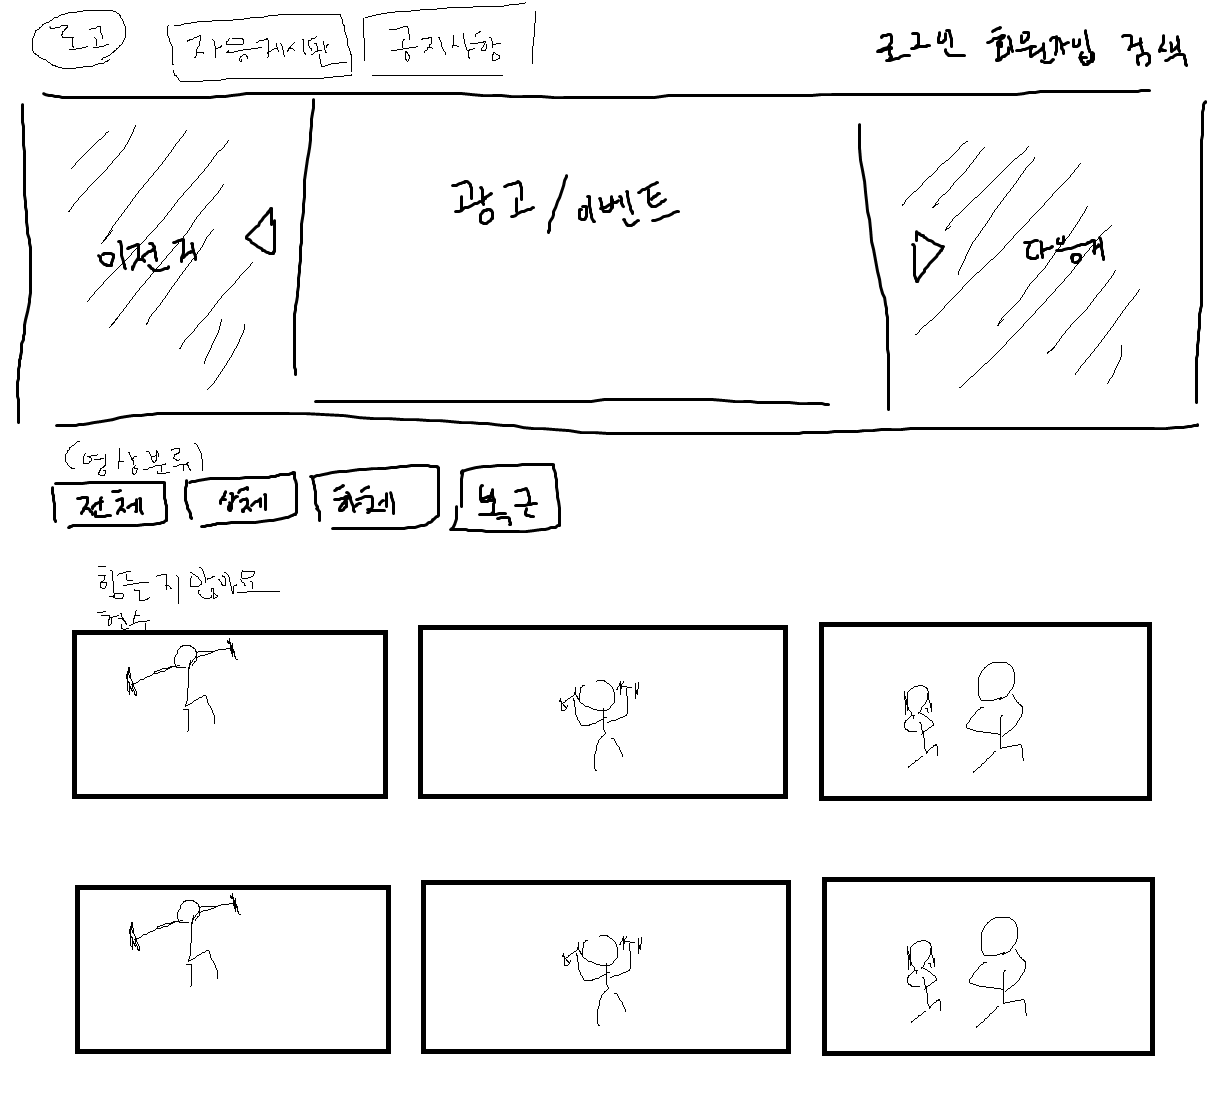 로고 자유게시판 공지사항 로그인 회원가입 검색
이전거 광고/이벤트 다음거
(영상분류)
전체 상체 하체 복근
힘든지 않아요